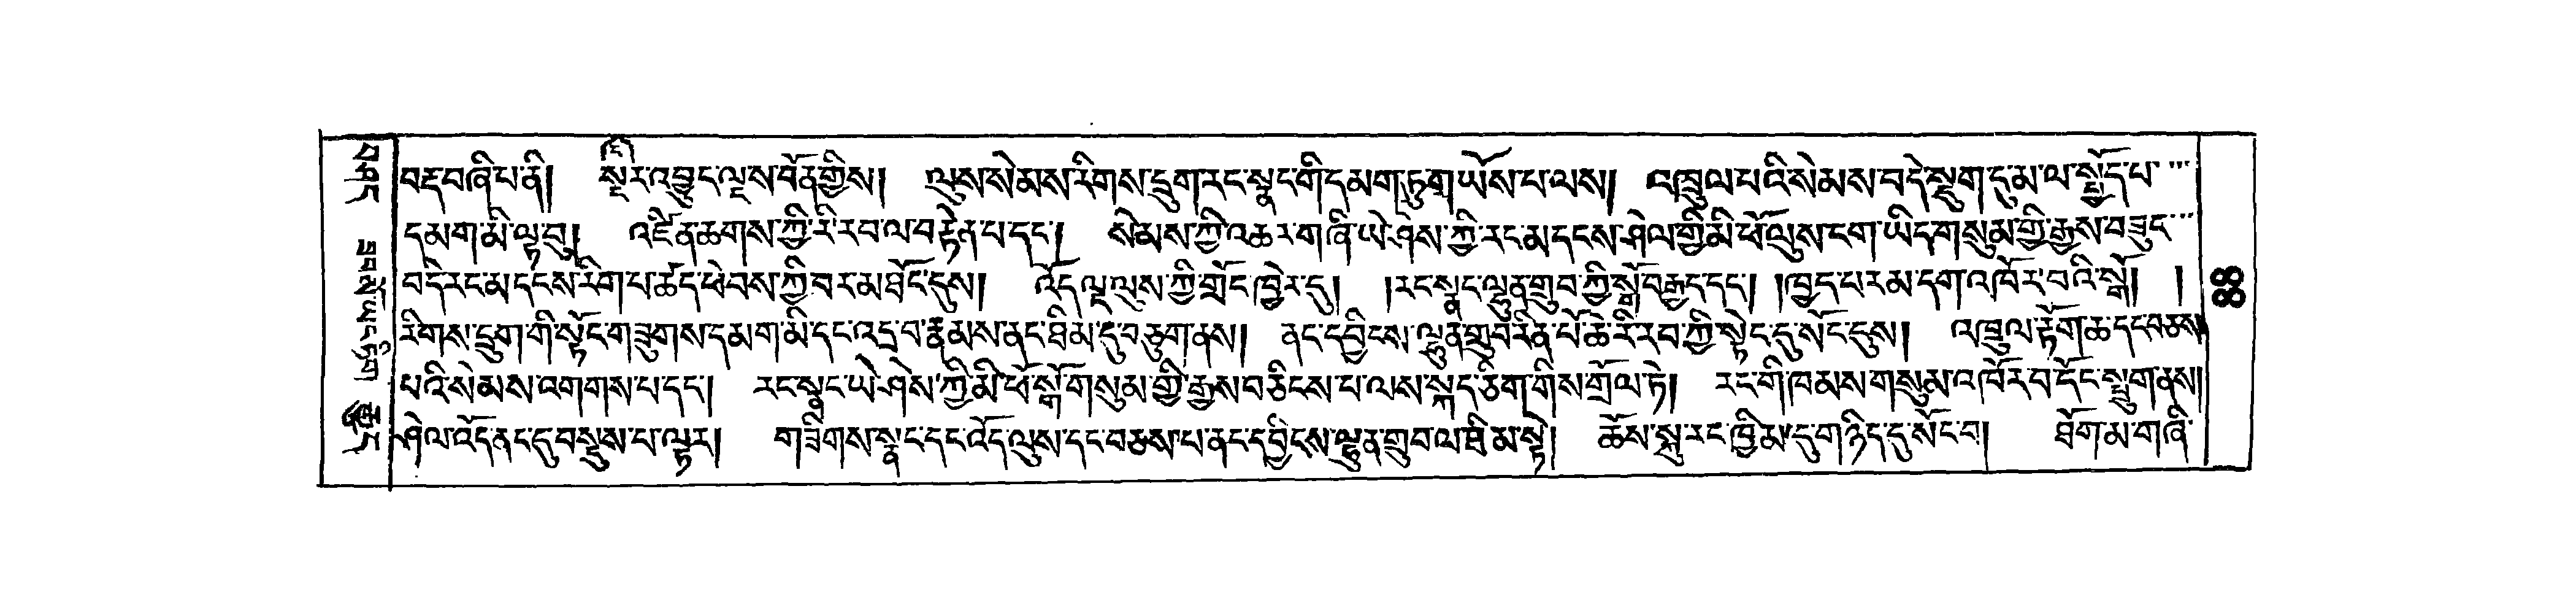 བརྡ་བཞི་པ་ནི། སྔོར་འབྱུང་ལྔས་བོན་གྱིས། ལུས་སེམས་རིགས་དྲུག་རང་སྣང་གི་དམག་ཏུ་གཡོས་པ་ལས། འཁྲུལ་པའི་སེམས་བདེ་སྡུག་དུ་མ་ལ་སྤྱོད་པ་
དམག་མི་ལྟ་བུ། འཛིན་ཆགས་ཀྱི་རི་རབ་ལ་བརྟེན་པ་དང་། སེམས་ཀྱི་འཆར་གཞི་ཡེ་ཤེས་ཀྱི་རང་མདངས་ཤེལ་གྱི་མི་ཕོ་ལུས་ངག་ཡིད་གསུམ་གྱི་རྒྱས་བཟུང་
བ་དེ་རང་མདངས་རིག་པ་ཚད་ཕེབས་ཀྱི་བར་མ་ཐོང་དུས། འོད་ལྔ་ལུས་ཀྱི་གྲོང་ཁྱེར་དུ། །རང་སྣང་ལྷུན་གྲུབ་ཀྱི་སྒོ་བརྒྱད་དང་། །ཁྱད་པར་མ་དག་འཁོར་བའི་སྒོ། །
རིགས་དྲུག་གི་སྟོང་གཟུགས་དམག་མི་དང་འདྲ་བ་རྣམས་ནང་ཐིམ་དུ་བཅུག་ནས། ནང་དབྱིངས་ལྷུན་གྲུབ་རིན་པོ་ཆེ་རི་རབ་ཀྱི་སྟེང་དུ་སོང་དུས། འཁྲུལ་རྟོག་ཆ་དང་བཅས་
པའི་སེམས་འགགས་པ་དང་། རང་སྣང་ཡེ་ཤེས་ཀྱི་མི་ཕོ་སྒོ་གསུམ་གྱི་རྒྱས་བཅིངས་པ་ལས་སྐད་ཅིག་གིས་གྲོལ་ཏེ། རང་གི་ཁམས་གསུམ་འཁོར་བ་དོང་སྤྲུགས་ནས།
ཤེལ་འོད་ནང་དུ་བསྡུས་པ་ལྟར། གཟིགས་སྣང་དང་འོད་ལུས་དང་བཅས་པ་ནང་དབྱིངས་ལྷུན་གྲུབ་ལ་ཐིམ་སྟེ། ཆོས་སྐུ་རང་ཁྱིམ་དུ་གཉིད་དུ་སོང་བ། ཐོག་མ་གཞི་